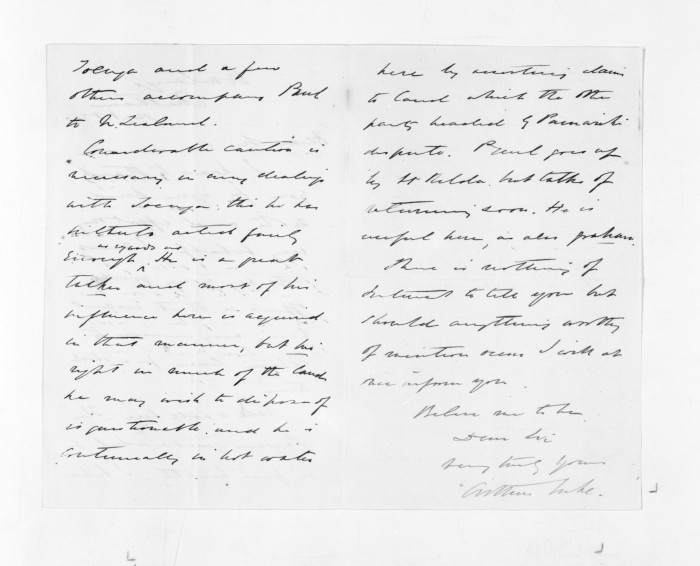 and a few
others accompany Paul
to N. Zealand.
Considerable caution is
necessary in any dealings
with this he has
hitherto acted fairly
as regards us
Enough. He is a great
talker and most of his
influence here is acquired
in that manner, but his
right in much of the land
he may wish to dispose of
is questionable and he is
continually in hot water
here by asserting claim
to land which the other
party headed by
dispute. Paul goes up
by St Kilda but talks of
returning soon. He is
useful here, as also graham.
There is nothing of
interest to tell you but
should anything worthy
of mention occur I will at
once inform you.
Believe me to be
Dear Sir
very truly yours
Arthur